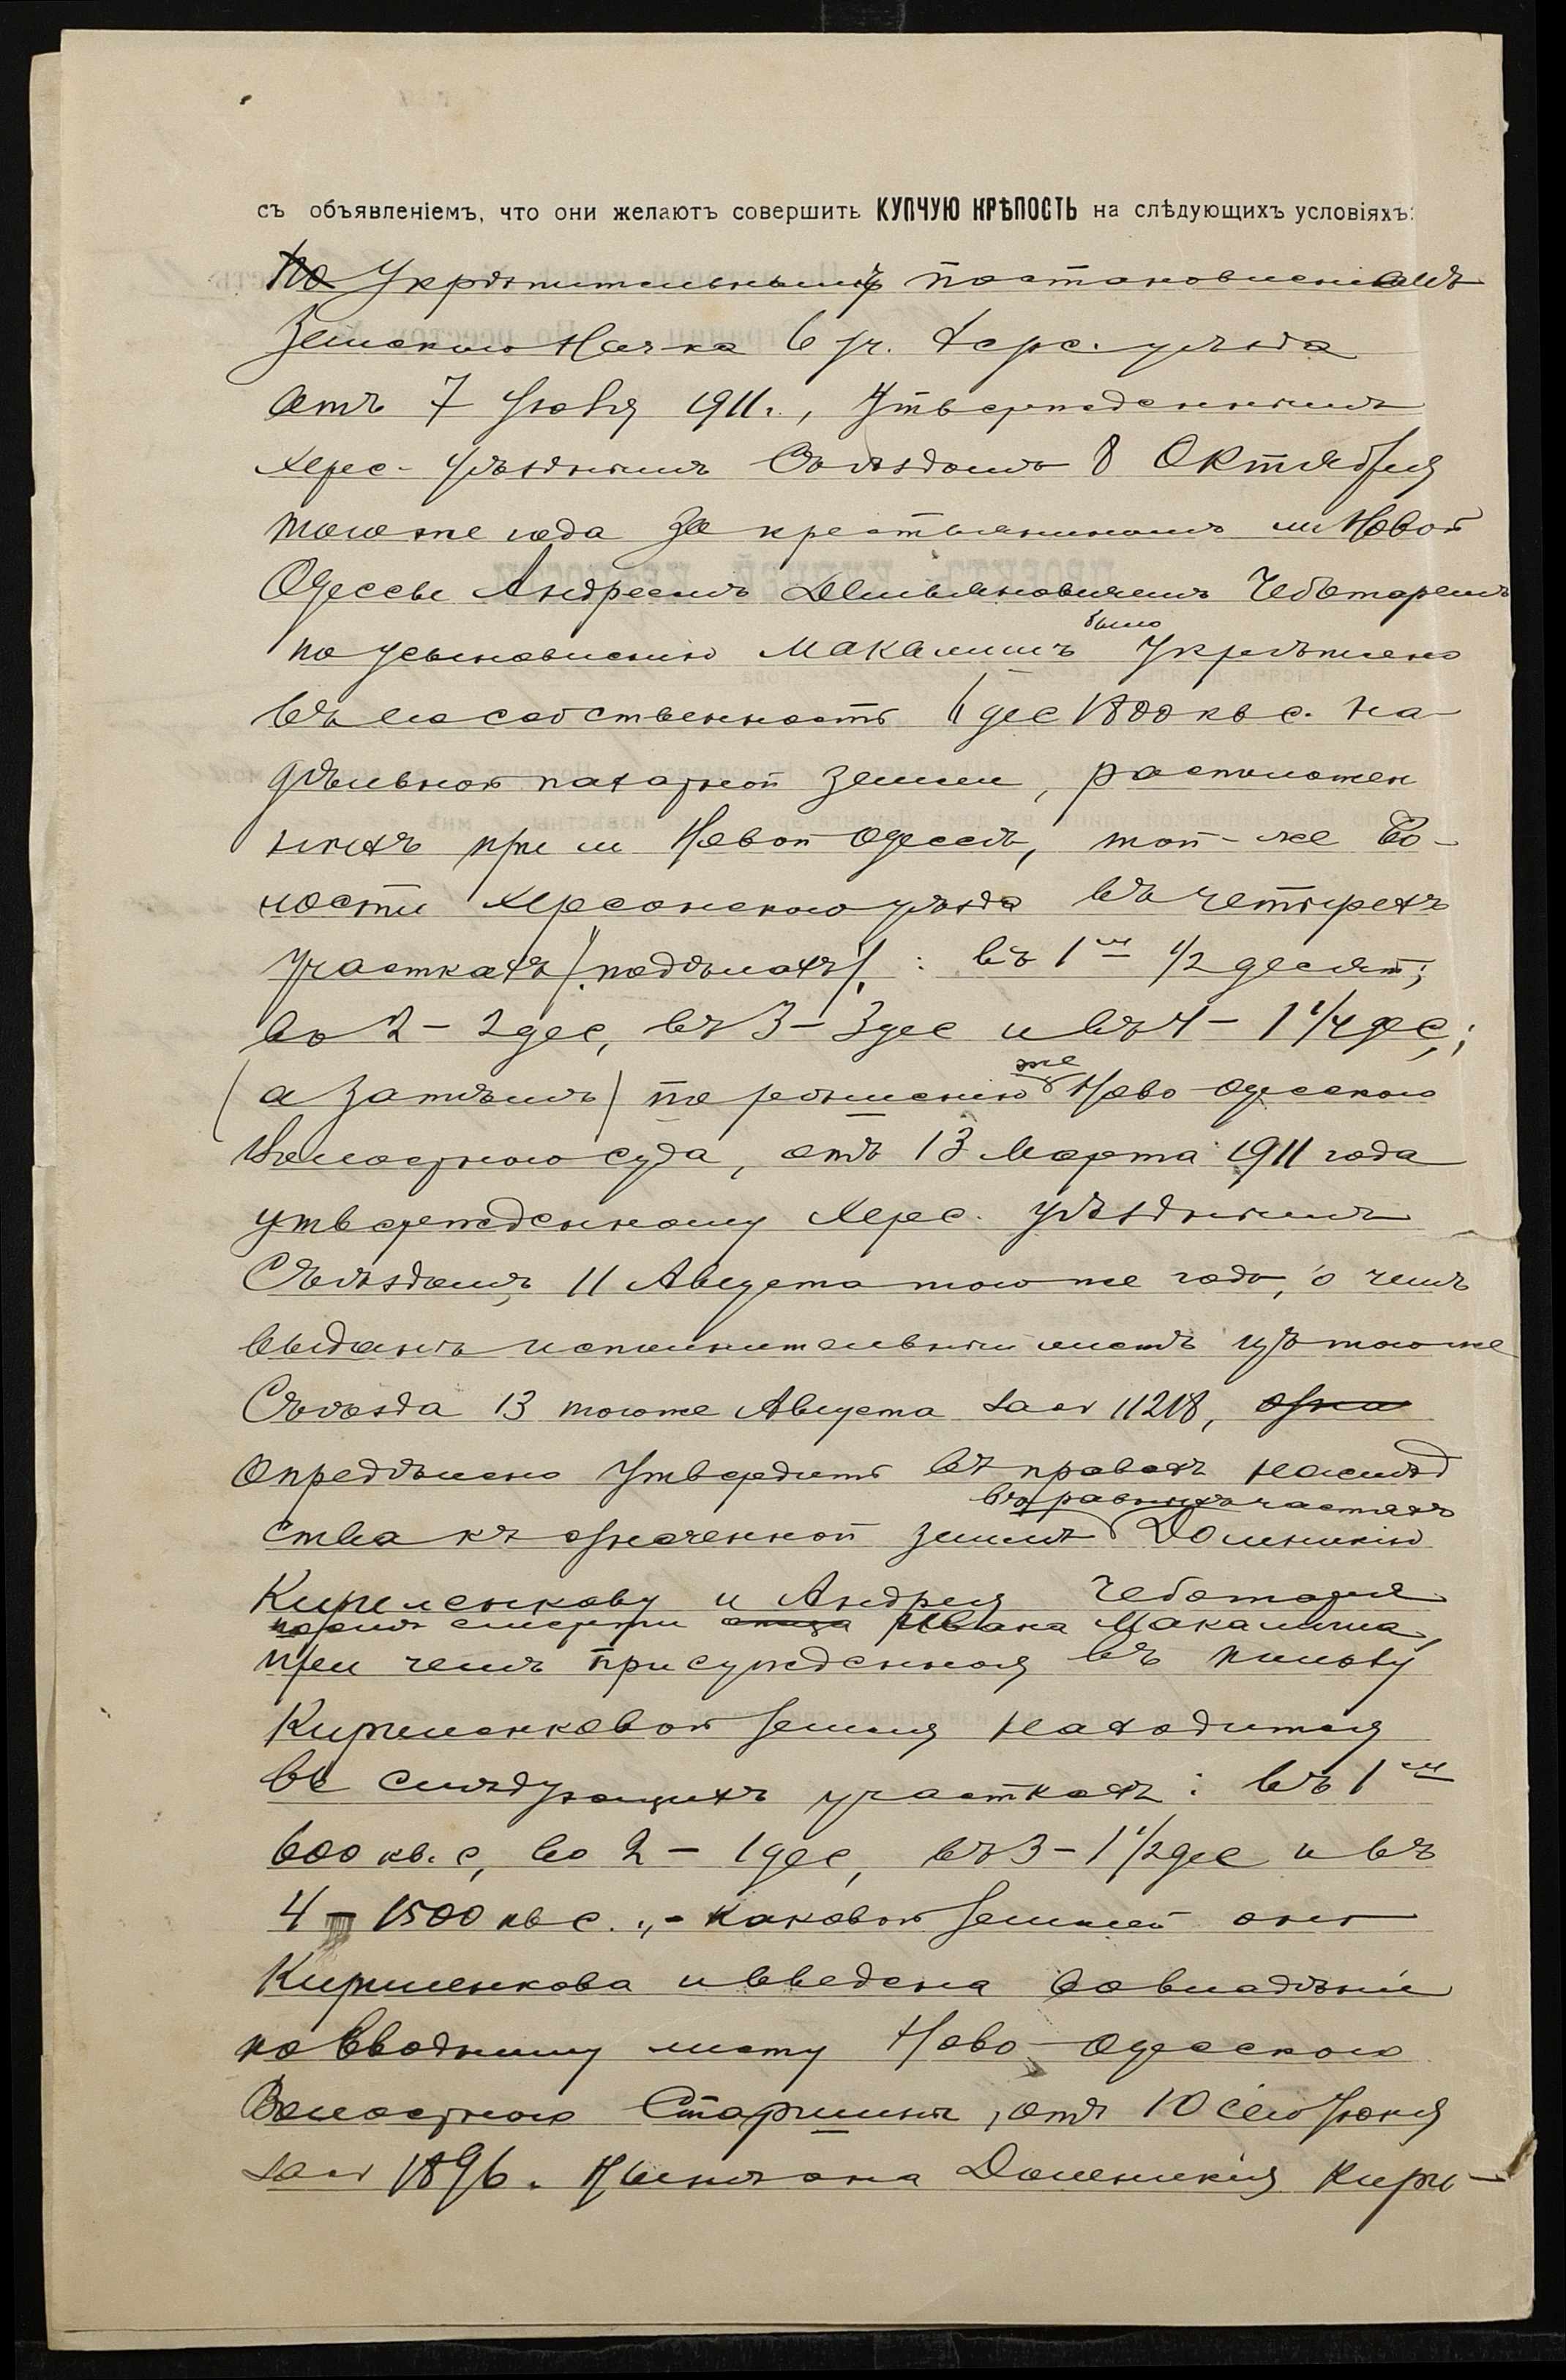 съ объявленіемъ, что они желаютъ совершить КУПЧУЮ КРѢПОСТЬ на слѣдующихъ условіяхъ:
По Укрѣпительнымъ постановленіемъ
Земскаго Нач-ка 6 уч. Херс. уѣзда
отъ 7 Іюля 1911 г., Утвержденнымъ
Херс. Уѣзднымъ Съѣздомъ 8 Октября
того же года за крестьяниномъ м Новой
Одессы Андреемъ Емельяновичемъ Чеботаремъ
было
по усыновленію Макалишъ Укрѣплено
въ его собственность 6 дес 1800 кв с. на
дѣльной пахатной земли, расположен
ныхъ при м Новой Одессѣ, той-же Во-
лости Херсонскаго уѣзда въ четырехъ
участкахъ /подѣлахъ/: въ 1м 1/2 десят;
во 2 - 2 дес, въ 3 - 3 дес и въ 4 - 1 1/4 дес;
же
(а затѣмъ) по рѣшенію Ново-Одесскаго
Волостного суда, отъ 13 Марта 1911 года
утвержденному Херс. уѣзднымъ
Съѣздомъ 11 Августа того же года, о чемъ
выданъ исполнительный листъ изъ того же
Съѣзда 13 того же Августа за № 11218,
Опредѣлено Утвердить въ правахъ наслѣд
въ равныхъ частяхъ
ства къ означенной землѣ Доминикію
Кириленкову и Андрея Чеботаря
послѣ смерти отца Ивана Макалиша,
при чемъ присужденная въ пользу
Кириленковой земля находится
въ слѣдующихъ участкахъ: въ 1м
600 кв. с, во 2 - 1 дес, въ 3 - 1 1/2 дес и въ
4 - 1500 кв с., - каковой землей она
Кириленкова и введена во владѣніе
по Вводному листу Ново-Одесскаго
Волостного Старшины, отъ 10 сего Іюня
за № 1896. Нынѣ она Доминикія Кири-